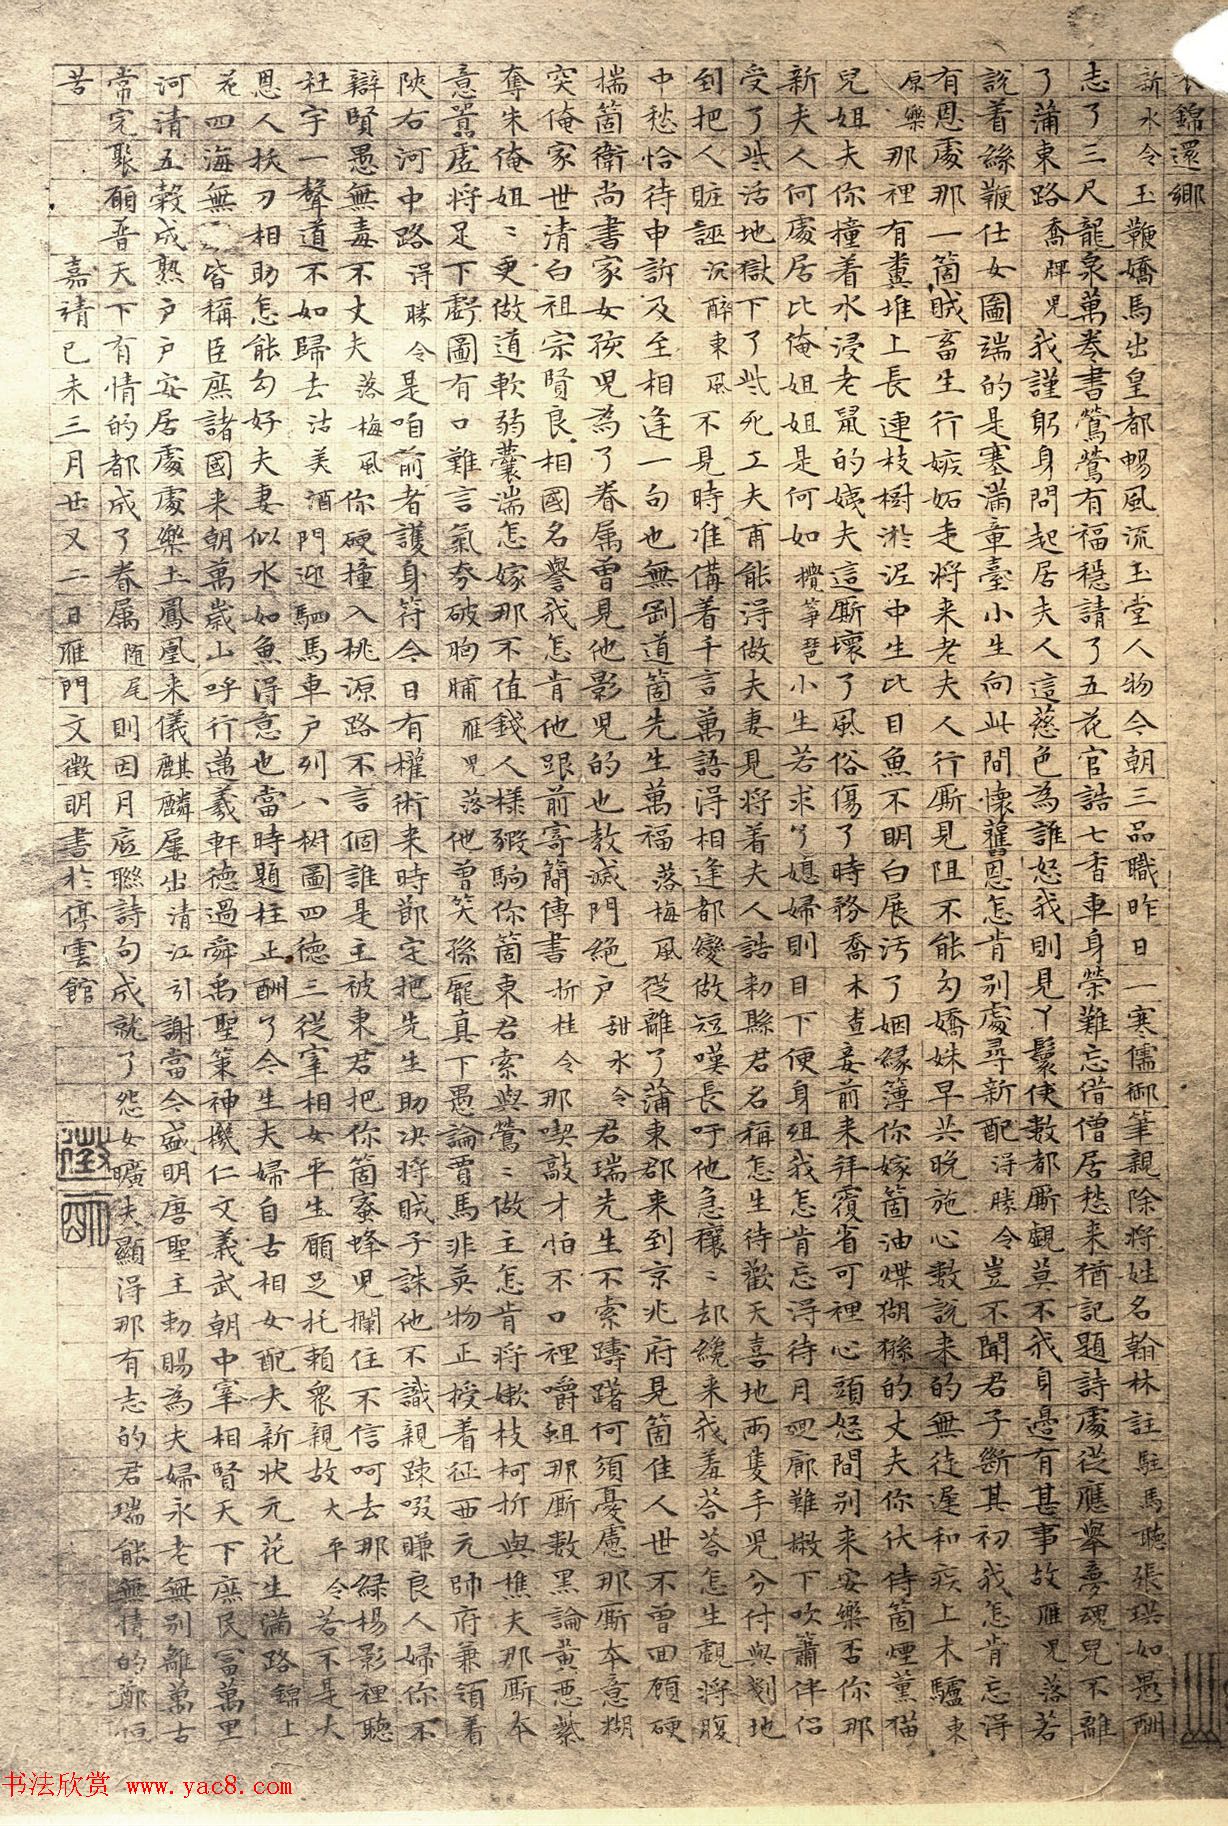 衣錦還鄉
新水令玉鞭嬌馬出皇都暢風流玉堂人物今朝三品職昨日一寒儒御筆親除將姓名翰林註駐馬聽張珙如愚酬
志了三尺龍泉萬卷書鶯鶯有福穩請了五花官誥七香車身榮難忘借僧居愁来猶記題詩處從應舉夢魂兒不離
了蒲東路喬牌兒我謹躬身問起居夫人這慈色為誰怒我則見丫鬟使數都厮覷莫不我身邊有甚事故雁兒落若
說着絲鞭仕女圖端的是塞滿章臺小生向此間懷舊恩怎肯别處尋新配得勝令豈不聞君子斷其初我怎肯忘得
有恩處那一箇賊畜生行嫉妬走將来老夫人行厮見阻不能勾嬌姝早共晚施心數說来的無徒遲和疾上木驢東
原樂那裡有糞堆上長連枝樹淤泥中生比目魚不明白展污了姻緣簿你嫁箇油煠猢猻的丈夫你伏侍箇煙薰猫
兒姐夫你撞着水浸老鼠的姨夫這厮壞了風俗傷了時務喬木查妾前来拜覆省可裡心頭怒間别来安樂否你那
新夫人何處居比俺姐姐是何如攪箏琶小生若求了媳婦則目下便身殂我怎肯忘得待月廻廊難撇下吹簫伴侣
受了些活地獄下了些死工夫甫能得做夫妻見將着夫人誥勑縣君名稱怎生待歡天喜地兩隻手兒分付與剗地
到把人贓誣沉醉東風不見時准備着千言萬語得相逢都變做短嘆長吁他急穰〻却纔来我羞荅荅怎生覷將腹
中愁恰待申訴及至相逢一句也無剛道箇先生萬福落梅風從離了蒲東郡来到京兆府見箇佳人世不曾回顧硬
揣箇衛尚書家女孩兒為了眷屬曾見他影兒的也教滅門絶户甜水令君瑞先生不索躊躇何須憂慮那厮本意糊
突俺家世清白祖宗賢良相國名譽我怎肯他跟前寄簡傳書折桂令那喫敲才怕不口裡嚼蛆那厮數黑論黃惡紫
奪朱俺姐〻更做道軟弱囊揣怎嫁那不值錢人樣豭駒你箇東君索與鶯〻做主怎肯將嫩枝柯折與樵夫那厮本
意囂虛將足下虧圖有口難言氣夯破胸脯雁兒落他曾笑孫龐真下愚論賈馬非英物正授着征西元帥府兼領着
陝右河中路得勝令是咱前者護身符今日有權術来時節定把先生助决將賊子誅他不識親疎啜賺良人婦你不
辯賢愚無毒不丈夫落梅風你硬撞入桃源路不言個誰是主被東君把你箇蜜蜂兒攔住不信呵去那綠楊影裡聽
杜宇一聲道不如歸去沽美酒門迎駟馬車户列八椒圖四德三從宰相女平生願足托賴衆親故太平令若不是大
恩人抜刀相助怎能勾好夫妻似水如魚得意也當時題柱正酬了今生夫婦自古相女配夫新状元花生滿路錦上
花四海無〻皆稱臣庶諸國来朝萬歲山呼行邁羲軒德過舜禹聖策神機仁文義武朝中宰相賢天下庶民冨萬里
河清五穀成熟户户安居處處樂土鳳凰来儀麒麟屢出清江引謝當今盛明唐聖主勑賜為夫婦永老無别離萬古
常完聚願普天下有情的都成了眷属随尾則因月底聯詩句成就了怨女曠夫顯得那有志的君瑞能無情的鄭恒
苦　嘉靖己未三月廿又二日雁門文徵明書於停雲館
徵明
书法欣赏 www.yac8.com